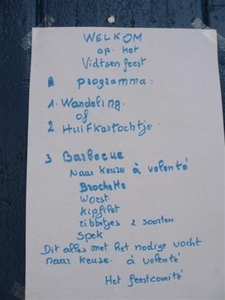 WELKOM
op het
Vidtsen feest
programma:
1. Wandeling
of
2 Huifkartochtje
3 Barbecue
Naar keuze à volenté
Brochette
Worst
kipfilet
ribbetjes 2 soorten
Spek
Dit alles met het nodige vocht
naar keuze à volenté
Het feestcomité